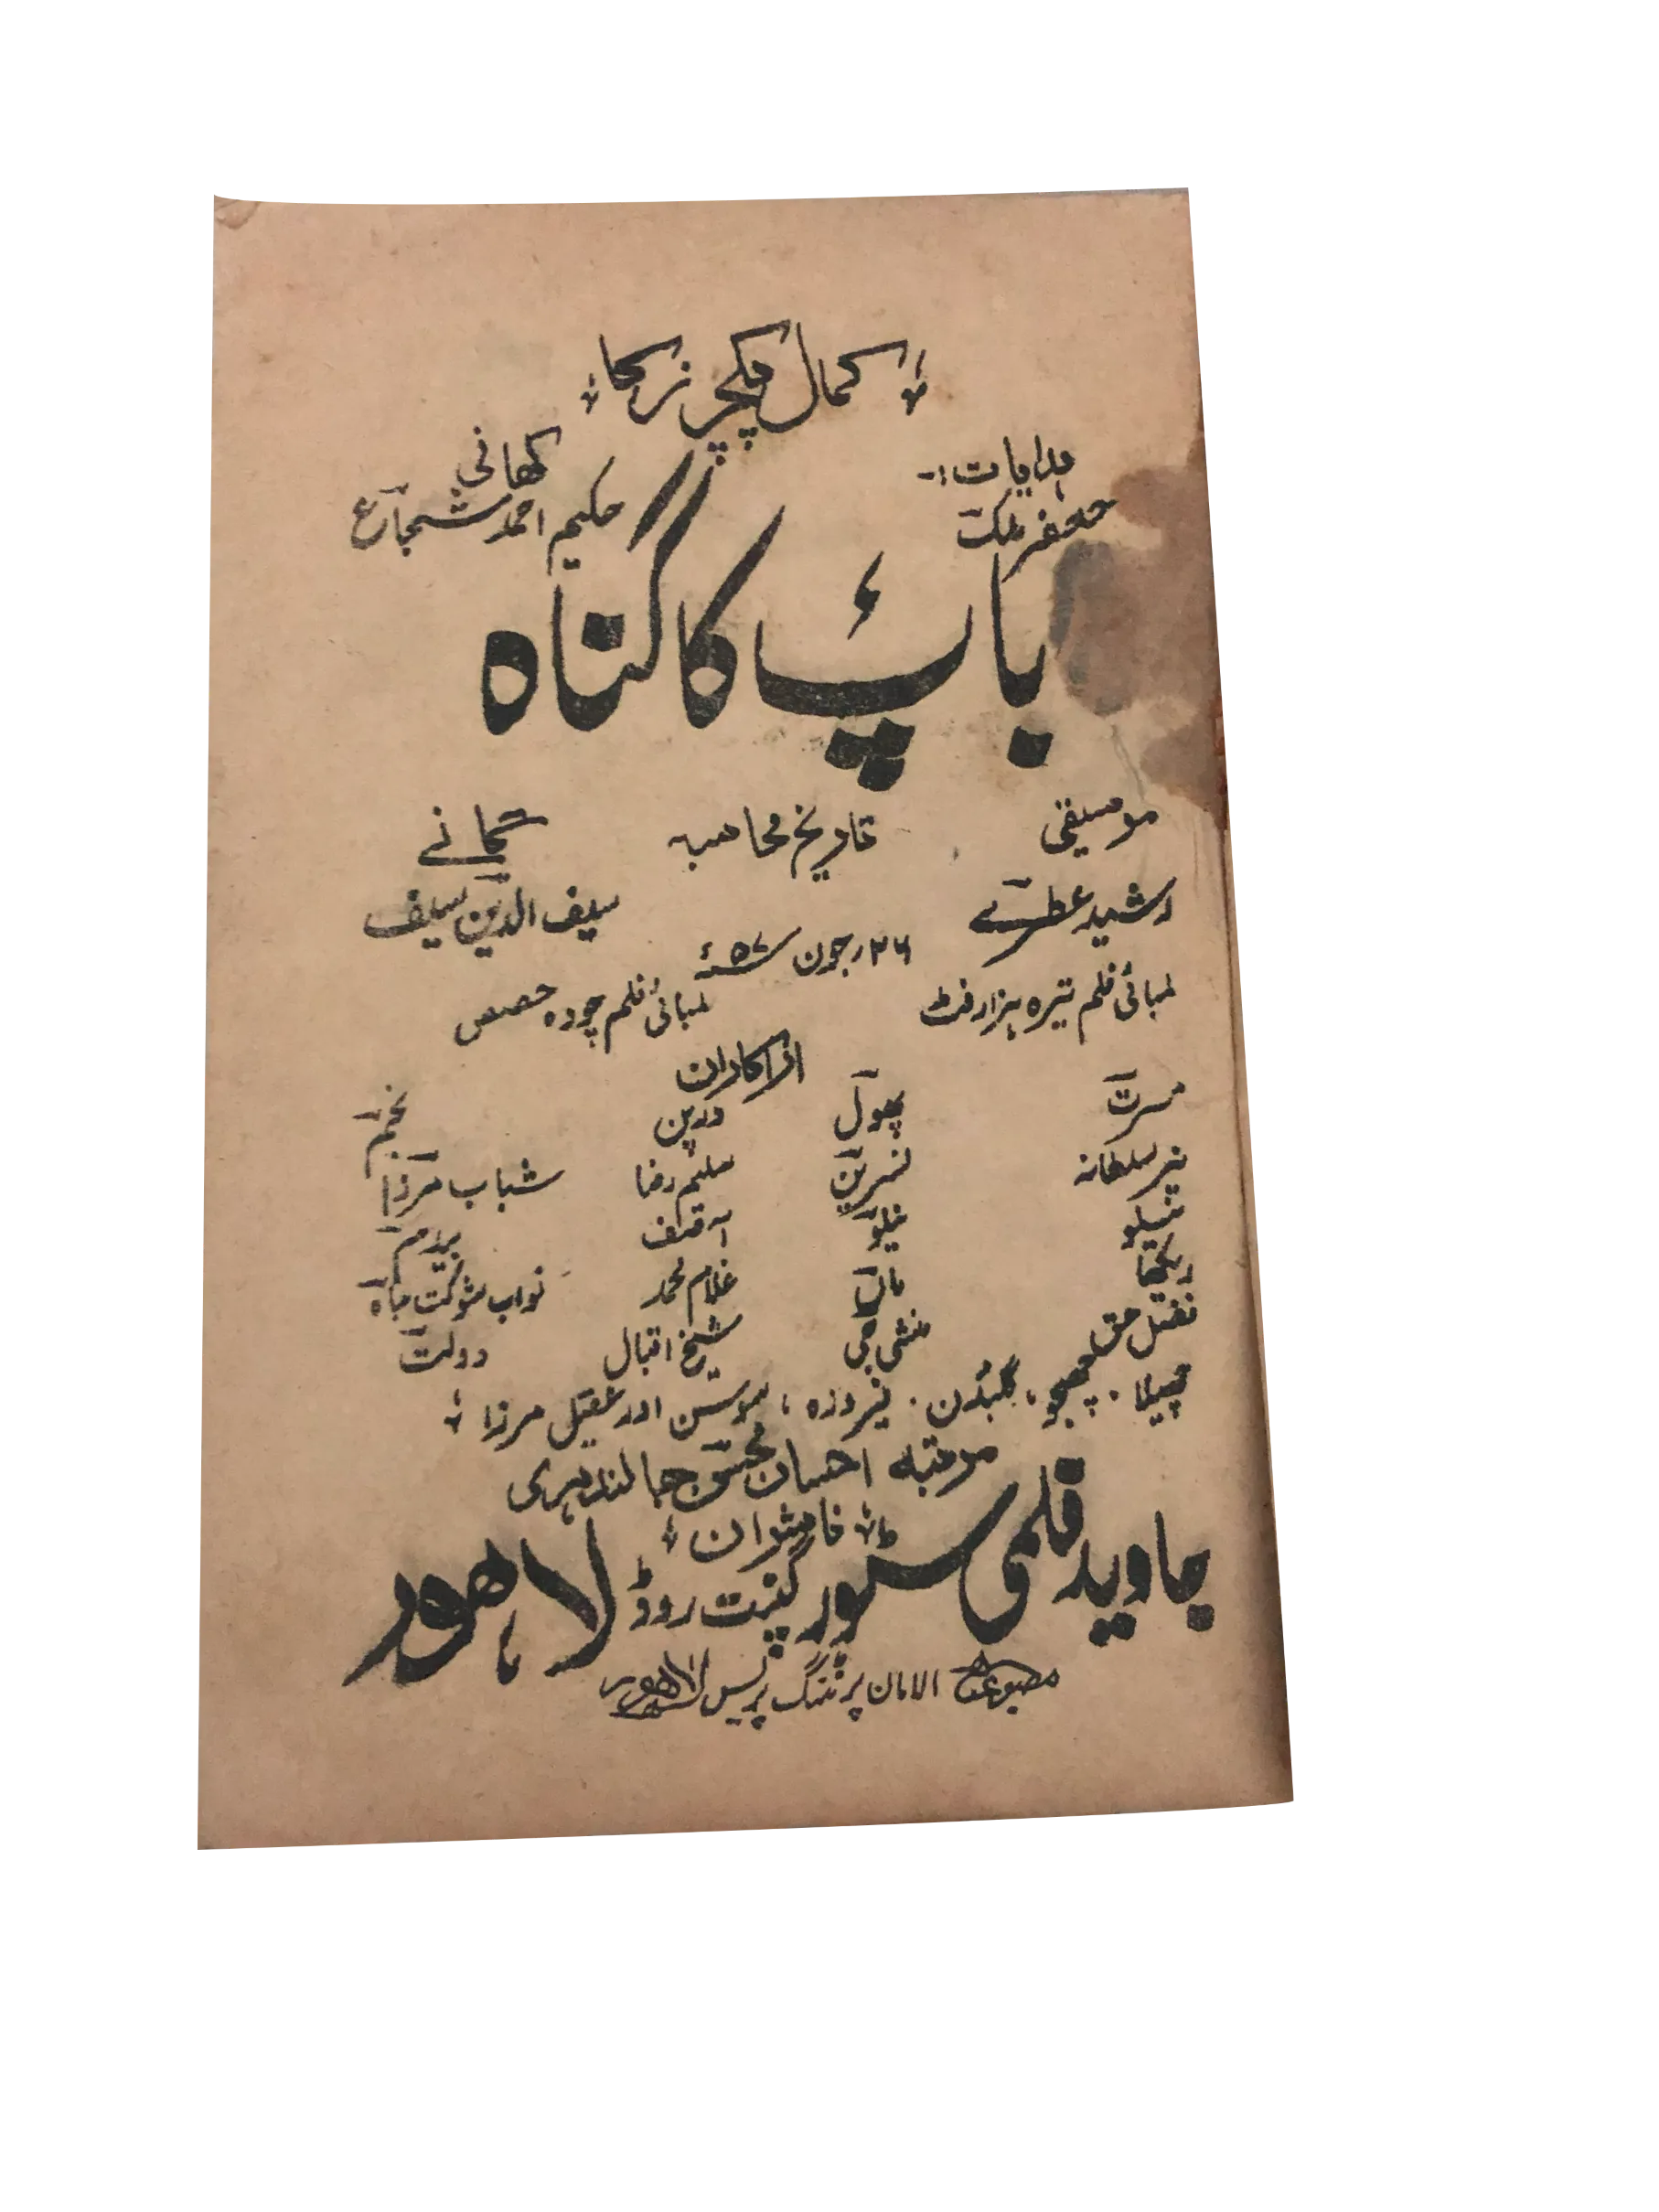 کمال پکچرز کا
ہدایات:- کہانی
جعفر ملک حکیم احمد شجاع
باپ کا گناہ
موسیقی تاریخ محاصبہ گانے
رشید عطرے ۲۶ رجون ۵۷ء سیف الدین سیف
لمبائی فلم تیرہ ہزار فٹ لمبائی فلم چودہ حصص
اداکاران
مسرت پھول درپن نجم
نیر سلطانہ نسرین سلیم رضا شباب مرزا
نیلو نیلو آصف بیدم
ریکھا ماں غلام محمد نواب شوکت جاہ
فضل حق منشی جی شیخ اقبال دولت
چھیلا، چھجو، گلبدن، فیروزہ، سوسن اور عقیل مرزا
مرتبہ احسان محسن جالندہری
ناشران
جاوید فلمی سٹور گنپت روڈ لاہور
مطبوعہ الامان پرنٹنگ پریس لاہور